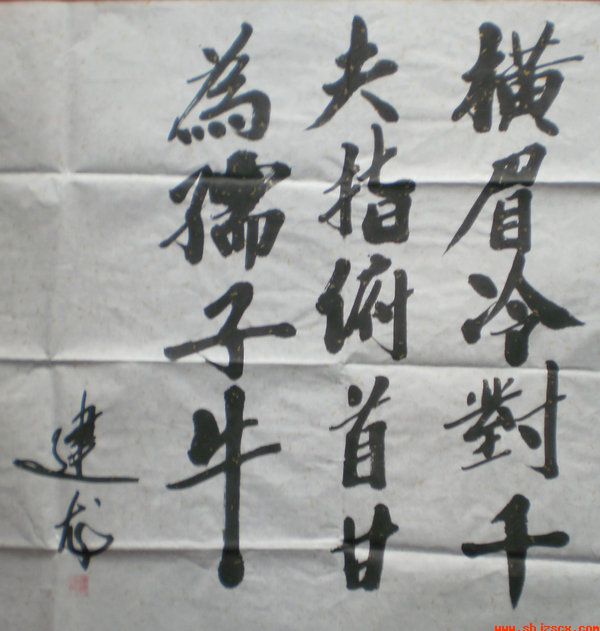 橫眉冷對千
夫指俯首甘
為孺子牛
建龙
www.shjzscx.com